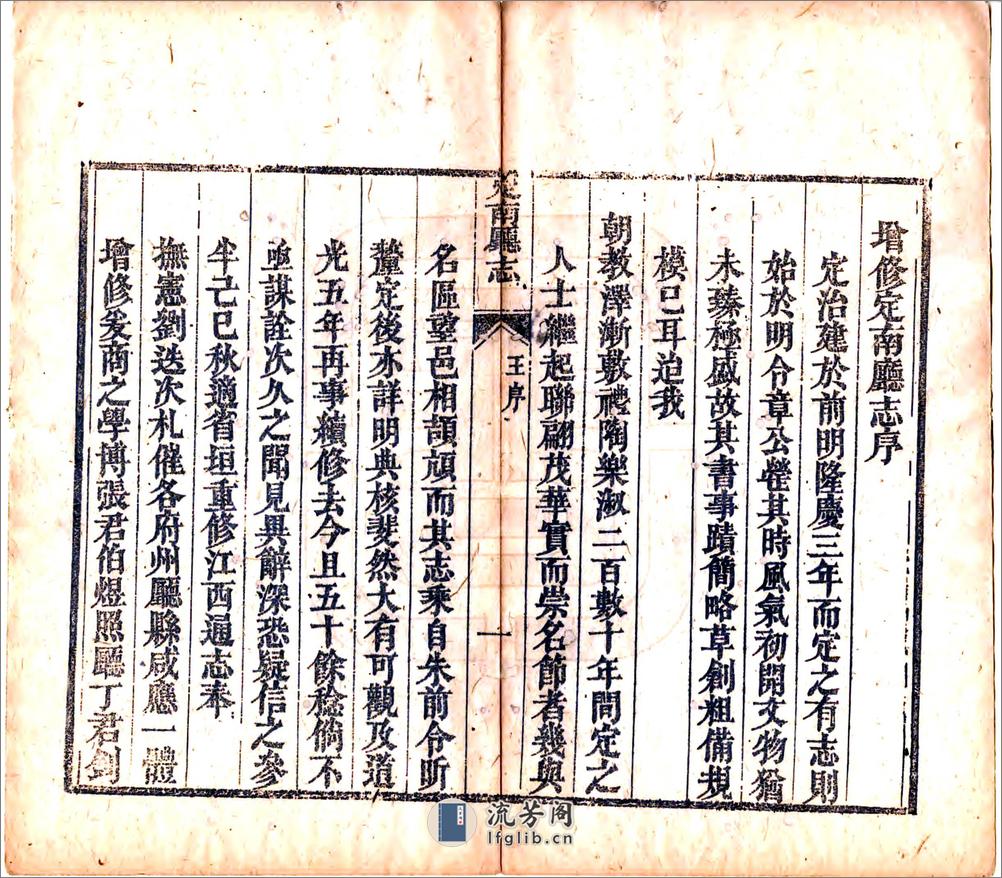 增修定南廳志序
定治建於前明隆慶三年而定之有志則
始於明令章公瑩其時風氣初開文物猶
未臻極盛故其書事蹟簡略草創粗備規
模已耳迨我
朝教澤漸敷禮陶樂淑二百數十年間定之
人士繼起聯翩茂華實而崇名節者幾與
定南廳志
王序
一
名區望邑相頡頏而其志乘自朱前令昕
釐定後亦詳明典核斐然大有可觀及道
光五年再事續修去今且五十餘稔倘不
亟謀詮次久之聞見異辭深恐疑信之參
半己巳秋適省垣重修江西通志奉
撫憲劉迭次札催各府州廳縣咸應一體
增修爰商之學博張君伯煜照廳丁君劍
流芳阁
lfglib.cn